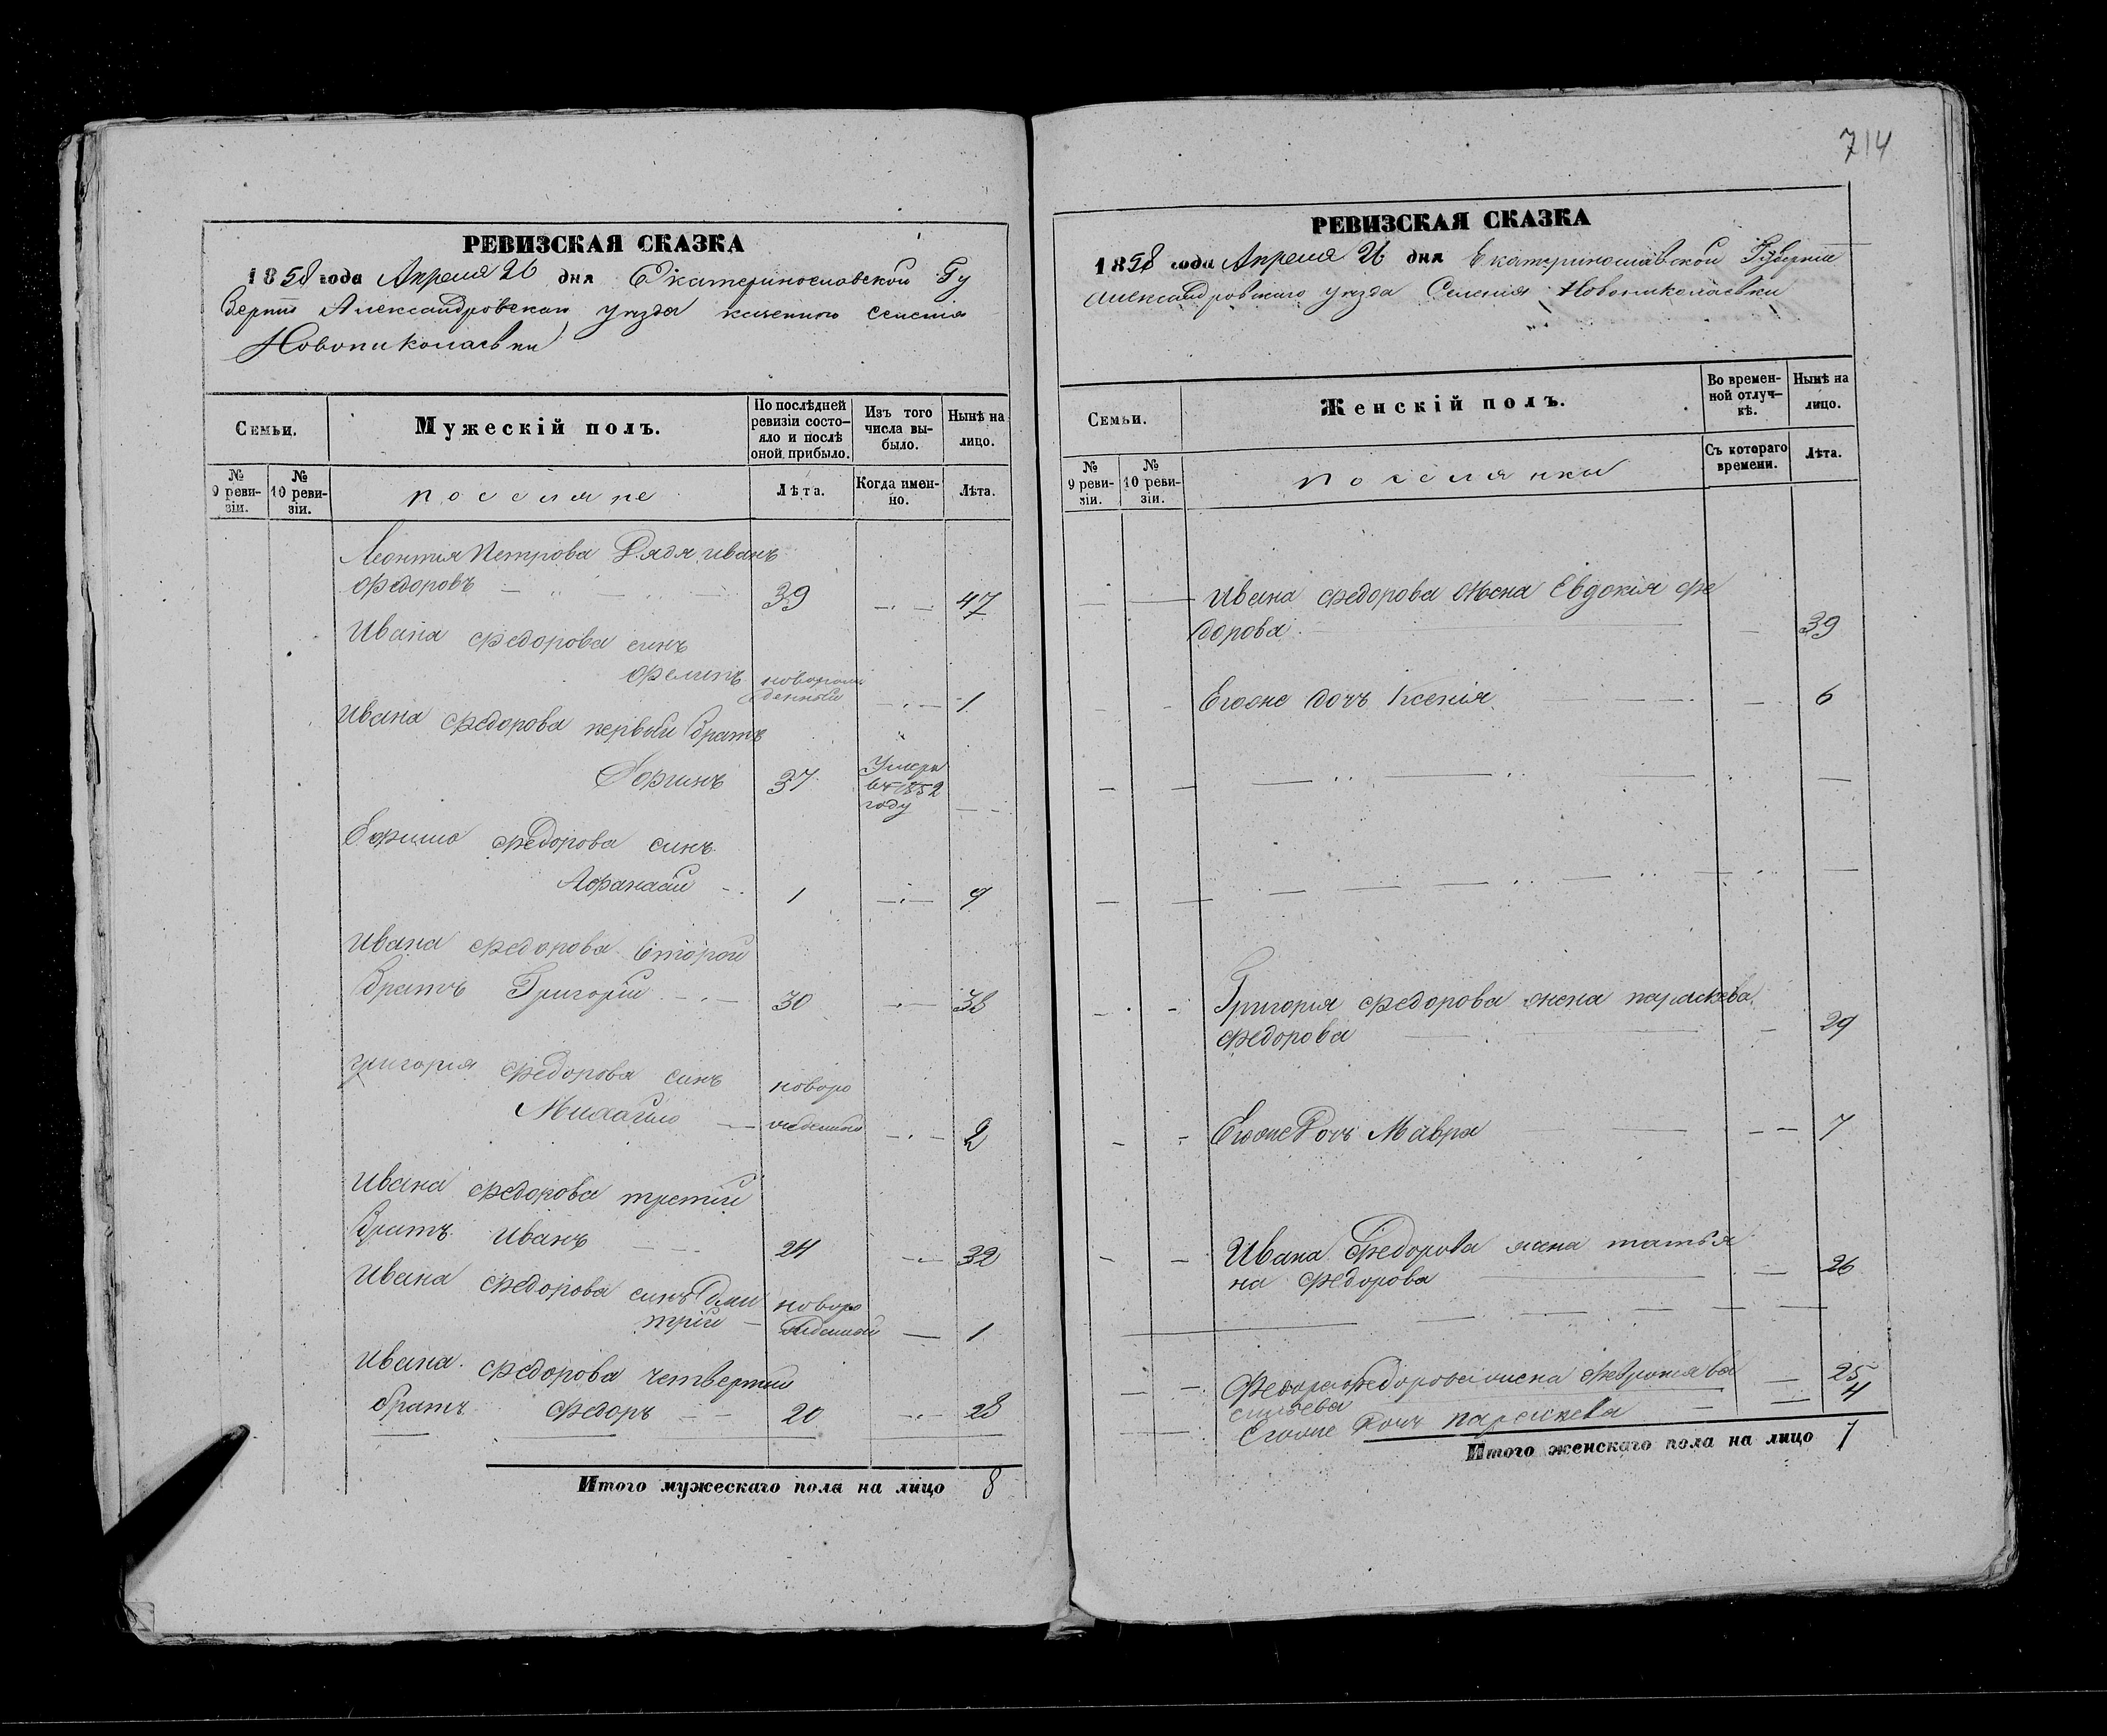 714
РЕВИЗСКАЯ СКАЗКА
1858 года Апреля 26 дня Екатеринославской Гу
берніи Александровскаго уезда казенного селенія
Новониколаевки
Семьи.
Мужескій полъ.
По послѣдней ревизіи состо-
яло и послѣ
оной прибыло.
Изъ того
числа вы-
было.
Нынѣ на
лицо.
№
9 реви-
зіи.
№
10 реви-
зіи.
поселяне
Лѣта.
Когда имен-
но.
Лѣта.
Леонтія Петрова Дядя иванъ
Федоровъ 39 47
Ивана Федорова синъ
Филипъ новорож
денный 1
Ивана Федорова первый братъ
37 Умеръ
въ 1852
году
Ефима Федорова синъ
Афанасій 1 9
Ивана Федорова второй
братъ Григорій 30 38
григорія Федорова синъ новоро
Михайло жденный 2
Ивана Федорова третій
братъ Иванъ 24 32
Ивана Федорова синъ Дми новоро
трій жденной 1
Ивана Федорова четвертий
братъ Федоръ 20 28
Итого мужескаго пола на лицо 8
РЕВИЗСКАЯ СКАЗКА
1858 года Апреля 26 дня Екатеринославской Губерніи
Александровскаго уезда Селенія Новониколаевки
Семьи.
Женскій полъ.
Во времен-
ной отлуч-
кѣ.
Нынѣ на
лицо.
№
9 реви-
зіи.
№
10 реви-
зіи.
поселянки
Съ котораго
времени.
Лѣта.
Ивана Федорова жена Евдокія Фе
дорова 39
Егоже дочъ Ксенія 6
Григорія Федорова жена параскева
Федорова 29
Егоже Дочъ Мавра 7
Ивана Федорова жена татья
на Федорова 26
Федора Федорова жена 25
Егоже Дочъ параскева 4
Итого женскаго пола на лицо 7